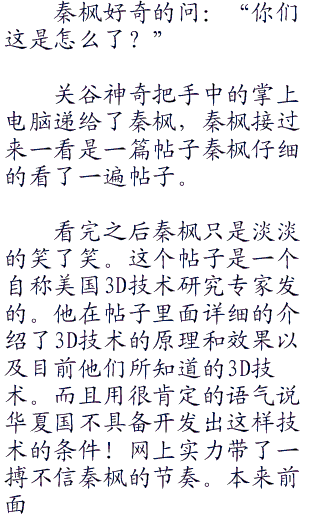 秦枫好奇的问：“你们
这是怎么了？”
关谷神奇把手中的掌上
电脑递给了秦枫，秦枫接过
来一看是一篇帖子秦枫仔细
的看了一遍帖子。
看完之后秦枫只是淡淡
的笑了笑。这个帖子是一个
自称美国3D技术研究专家发
的。他在帖子里面详细的介
绍了3D技术的原理和效果以
及目前他们所知道的3D技
术。而且用很肯定的语气说
华夏国不具备开发出这样技
术的条件！网上实力带了一
搏不信秦枫的节奏。本来前
面